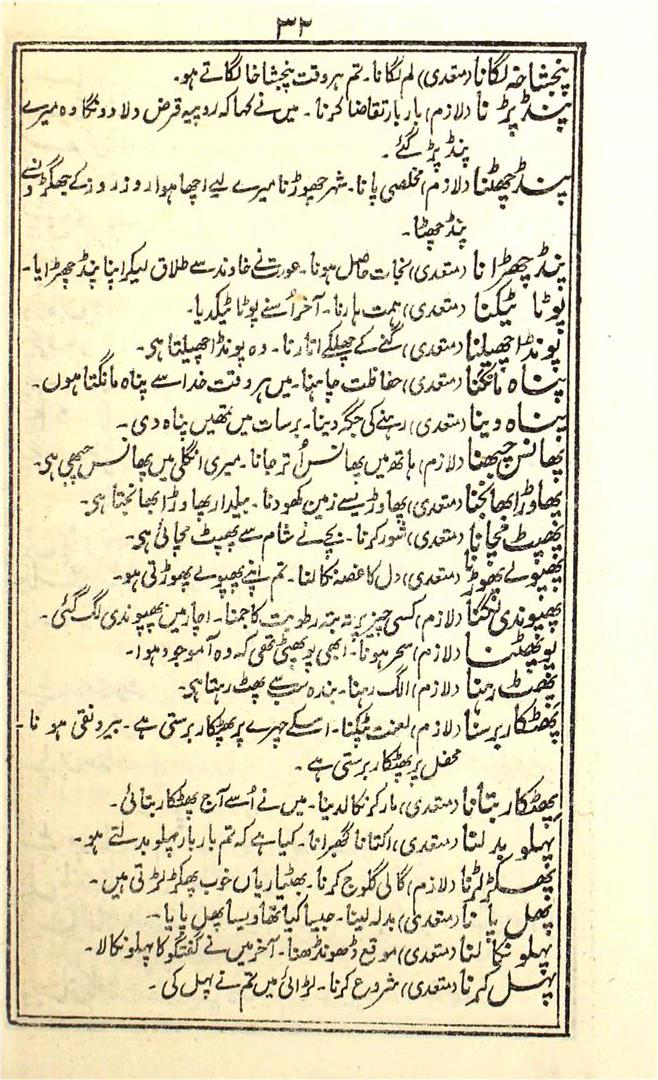 ۳۲
پنجشاخہ لگانا (متعدی) لم لگانا۔ تم ہر وقت پنجشاخا لگاتے ہو۔
پنڈ پڑ نا (لازم) بار بار تقاضا کرنا۔ میں نے کہا کہ روپیہ قرض دلا دونگا وہ میرے
پنڈ پڑ گئے۔
پنڈ چھٹنا (لازم) مخلصی پانا۔ شہر چھوڑنا میرے لیے اچھا ہوا روز روز کے جھگڑونسے
پنڈ چھٹا۔
پنڈ چھڑانا (متعدی) نجات حاصل ہونا۔ عورت نے خاوند سے طلاق لیکر اپنا پنڈ چھڑایا۔
پوٹا ٹیکنا (متعدی) ہمت ہارنا۔ آخر اُسنے پوٹا ٹیکدیا۔
پونڈا چھیلنا (متعدی) گنے کے چھلکے اتارنا۔ وہ پونڈا چھیلتا ہی۔
پناہ مانگنا (متعدی) حفاظت چاہنا۔ میں ہر وقت خدا سے پناہ مانگتا ہوں۔
پناہ دینا (متعدی) رہنے کی جگہ دینا۔ برسات میں تمھیں پناہ دی۔
پھانس چبھنا (لازم) ہاتھ میں پھانس اُتر جانا۔ میری انگلی میں پھانس چبھی ہی۔
پھاوڑا بھانجنا (متعدی) پھاوڑے سے زمین کھودنا۔ بیلدار پھاوڑا بھانجتا ہی۔
پھپٹ مچانا (متعدی) شور کرنا۔ بچے نے شام سے پھپٹ مچائی ہی۔
پھپولے پھوڑنا (متعدی) دل کا غصہ نکالنا۔ تم اپنے پھپولے پھوڑتی ہو۔
پھپوندی لگنا (لازم) کسی چیز پر تہ بتہ رطوبت کا جمنا۔ اچار میں پھپوندی لگ گئی۔
پو پھٹنا (لازم) سحر ہونا۔ ابھی پو پھٹی تھی کہ وہ آ موجود ہوا۔
پھٹ رہنا (لازم) الگ رہنا۔ بندہ سب سے پھٹ رہتا ہی۔
پھٹکار برسنا (لازم) لعنت ٹپکنا۔ اسکے چہرے پر پھٹکار برستی ہے۔ بیرونقی ہونا۔
محفل پر پھٹکار برستی ہے۔
پھٹکار بتانا (متعدی) مار کر نکالدینا۔ میں نے اُسے آج پھٹکار بتائی۔
پہلو بدلنا (متعدی) اکتانا گھبرانا۔ کیا ہے کہ تم بار بار پہلو بدلتے ہو۔
پھکڑ لڑنا (لازم) گالی گلوج کرنا۔ بھٹیاریاں خوب پھکڑ لڑتی ہیں۔
پھل پا نا (متعدی) بدلہ لینا۔ جیسا کیا تھا ویسا پھل پایا۔
پہلو نکالنا (متعدی) موقع ڈھونڈھنا۔ آخر میں نے گفتگو کا پہلو نکالا۔
پہل کرنا (متعدی) شروع کرنا۔ لڑائی میں تم نے پہل کی۔